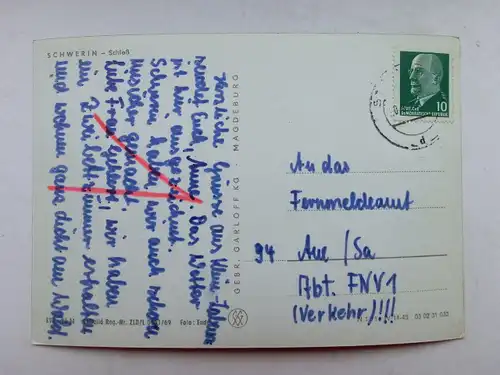 SCHWERIN – Schloß
Herzliche Grüße aus Klein-
Euch, Anne. Das Wetter
ist hier ausgezeichnet.
Schwerin haben wir auch schon
unsicher gemacht.
Liebe Frau, wir haben
ein Zweibettzimmer erhalten
und wohnen ganz dicht am Wald.
GEBR. GARLOFF KG · MAGDEBURG
10
DEUTSCHE DEMOKRATISCHE REPUBLIK
An das
Fernmeldeamt
94 Aue/Sa
Abt. FNV1
(Verkehr)!!!!
Foto:
03 02 31 033